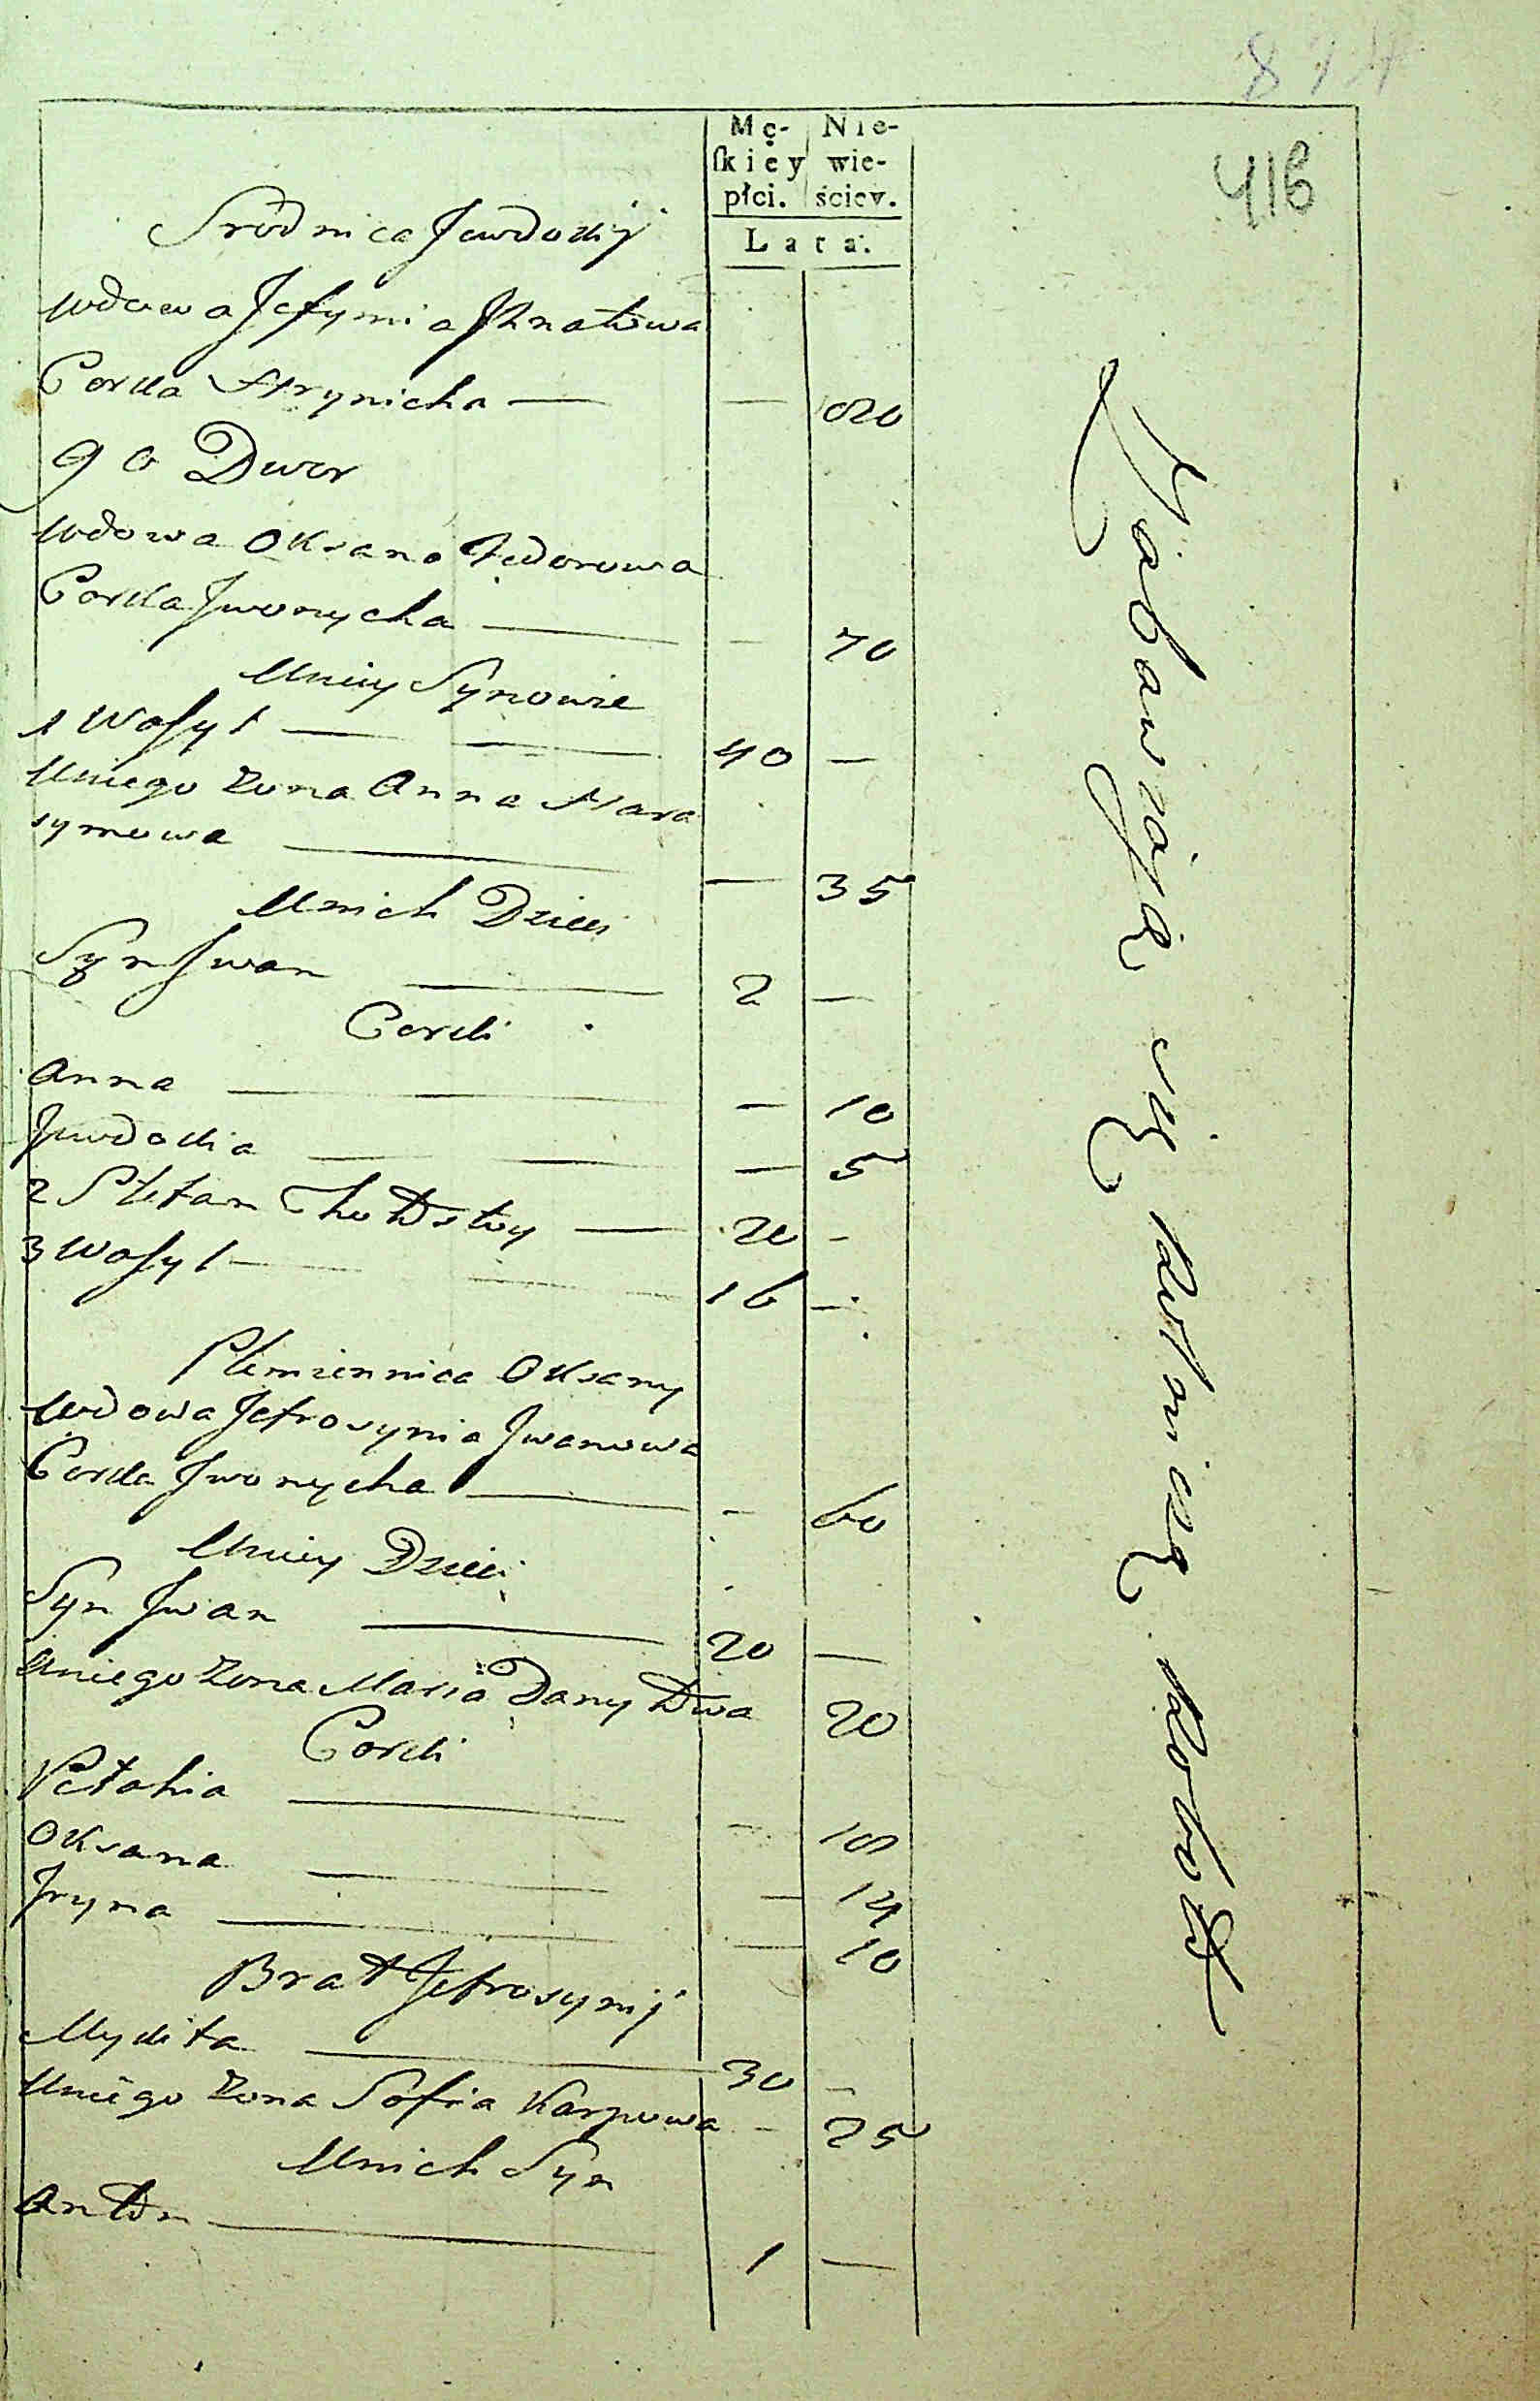 416
Mę-
ſkiey
płci.
Nie-
wie-
ściey.
Lata.
Srodnica Jewdokij
wdowa Jefymia Jhnatowa
Corka Hrynicha — — 80
9 o Dwor
wdowa Oksana Fedorowa
Corka Jwonycha — — 70
Uniey Synowie
1 Wasyl — 40 —
Uniego zona Anna Hara
symowa — — 35
Unich Dzieci
Syn Jwan — 2 —
Corki
Anna — — 10
Jewdokia — — 5
2 Stefan Chołosty — 20 -
3 Wasyl — 16 —
Plemiennica Oksany
wdowa Jefrosynia Jwanowa
Corka Jwonycha — - 60
Uniey Dzieci
Syn Jwan — 20 —
Uniego zona Maria Danyłowa 20
Corki
Pełahia — — 18
Oksana — — 14
Jryna — — 10
Brat Jefrosynij
Mykita — 30 -
Uniego zona Sofia Karpowa - 25
Unich Syn
Anton — 1 —
Zabawiaią się rolnicą robotą